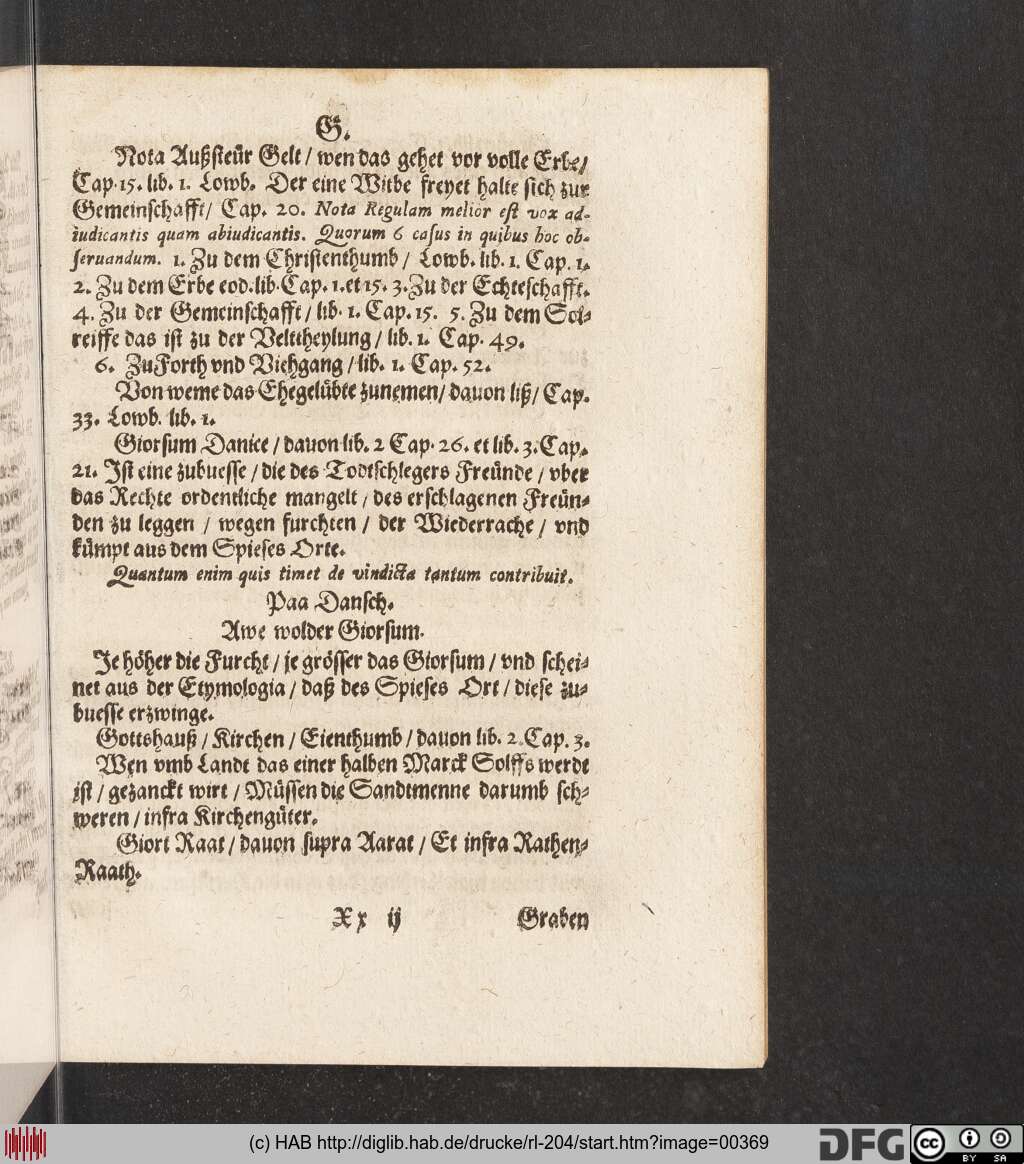 G.
Nota Außsteür Gelt / wen das gehet vor volle Erbe/
Cap. 15. lib. 1. Lowb. Der eine Witbe freyet halte sich zur
Gemeinschafft/ Cap. 20. Nota Regulam melior est vox ad-
iudicantis quam abiudicantis. Quorum 6 casus in quibus hoc ob-
seruandum. 1. Zu dem Christenthumb / Lowb. lib. 1. Cap. 1.
2. Zu dem Erbe eod. lib. Cap. 1. et 15. 3. Zu der Echteschafft.
4. Zu der Gemeinschafft / lib. 1. Cap. 15. 5. Zu dem Sol-
reiffe das ist zu der Velttheylung / lib. 1. Cap. 49.
6. Zu Forth vnd Viehgang / lib. 1. Cap. 52.
Von weme das Ehegelübte zunemen/ dauon liß/ Cap.
33. Lowb. lib. 1.
Giorsum Danice / dauon lib. 2 Cap. 26. et lib. 3. Cap.
21. Ist eine zubuesse / die des Todtschlegers Freünde / vber
das Rechte ordentliche mangelt / des erschlagenen Freün-
den zu leggen / wegen furchten / der Wiederrache / vnd
kümpt aus dem Spieses Orte.
Quantum enim quis timet de vindicta tantum contribuit.
Paa Dansch.
Awe wolder Giorsum.
Je höher die Furcht / je grösser das Giorsum / vnd schei-
net aus der Etymologia / daß des Spieses Ort / diese zu-
buesse erzwinge.
Gottshauß / Kirchen / Eienthumb / dauon lib. 2. Cap. 3.
Wen vmb Landt das einer halben Marck Solffs werdt
ist / gezanckt wirt / Müssen die Sandtmenne darumb sch-
weren / infra Kirchengüter.
Giort Raat / dauon supra Aarat / Et infra Rathen-
Raath.
Xx ij Graben
(c) HAB http://diglib.hab.de/drucke/rl-204/start.htm?image=00369
DFG
cc BY SA